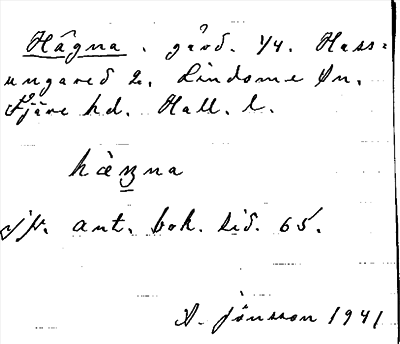 Hägna. gård. 1/4. Hass=
ungared 2. Lindome sn.
Fjäre hd. Hall. l.
hàŋna
ant. bok. sid. 65.
A. Jönsson 1941